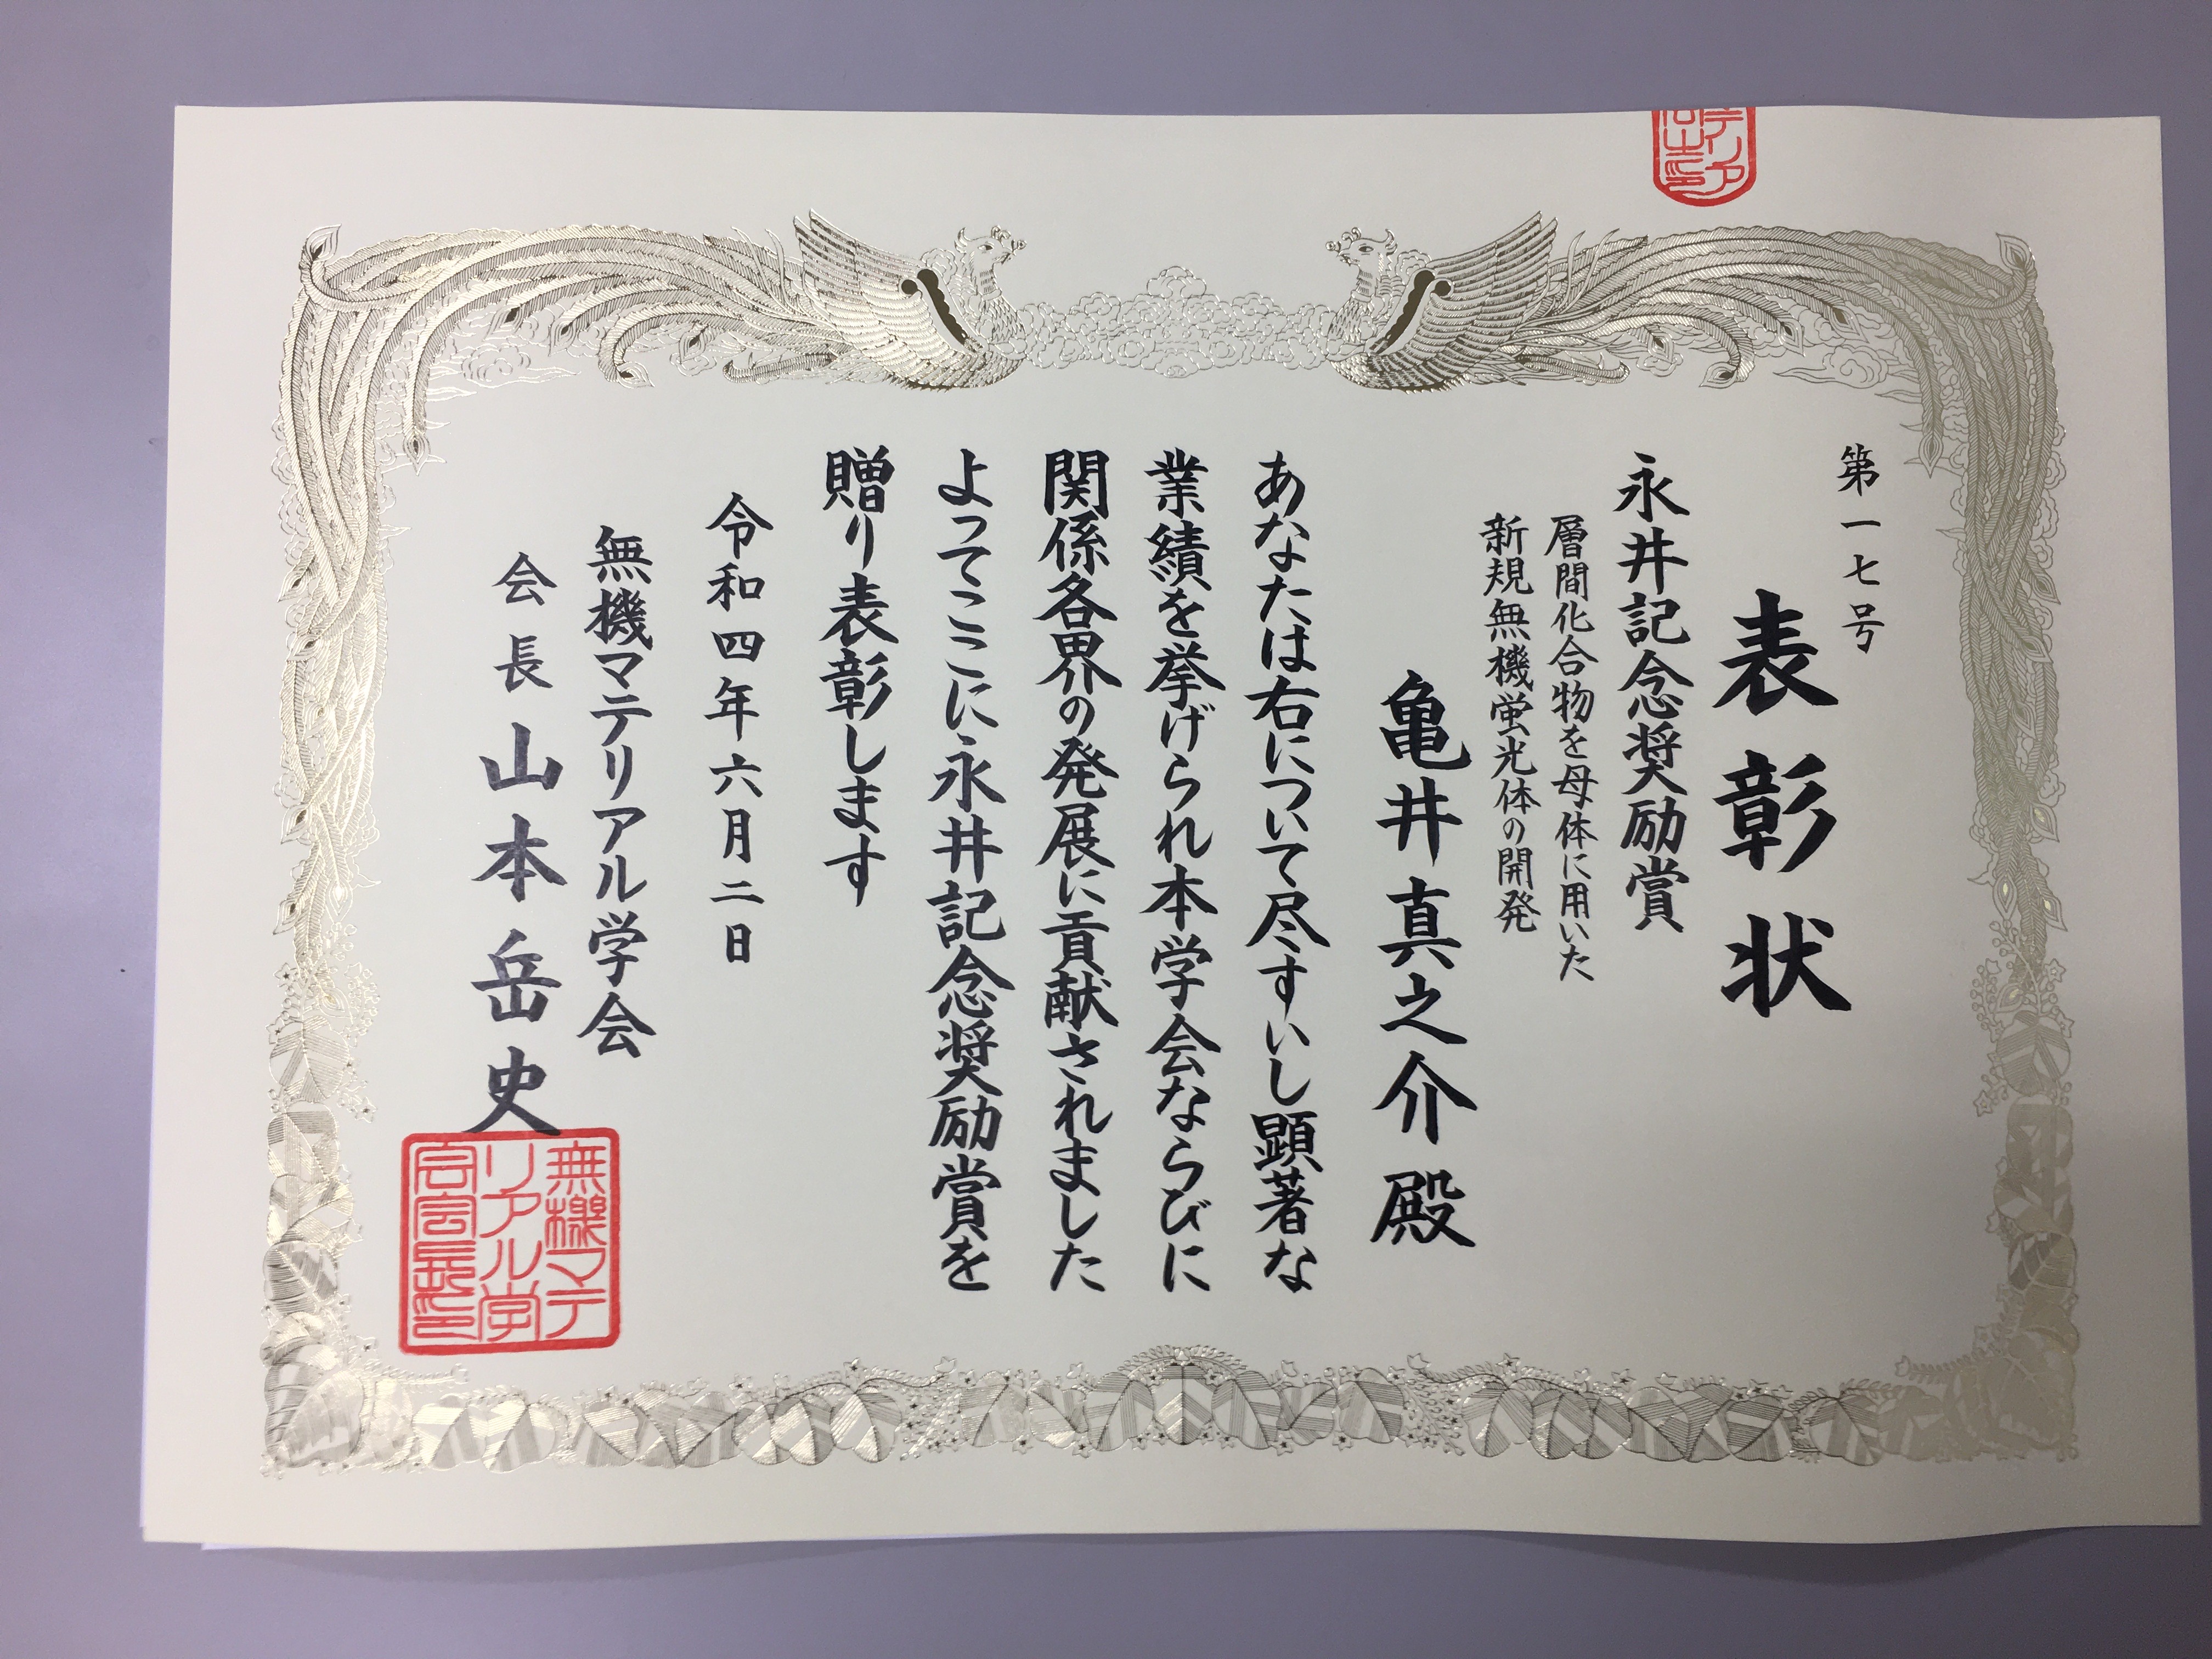 第一七号
表彰状
永井記念奨励賞
層間化合物を母体に用いた
新規無機蛍光体の開発
亀井真之介殿
あなたは右について尽すいし顕著な
業績を挙げられ本学会ならびに
関係各界の発展に貢献されました
よってここに永井記念奨励賞を
贈り表彰します
令和四年六月二日
無機マテリアル学会
会長山本岳史
無機マテ
リアル学
会会長印